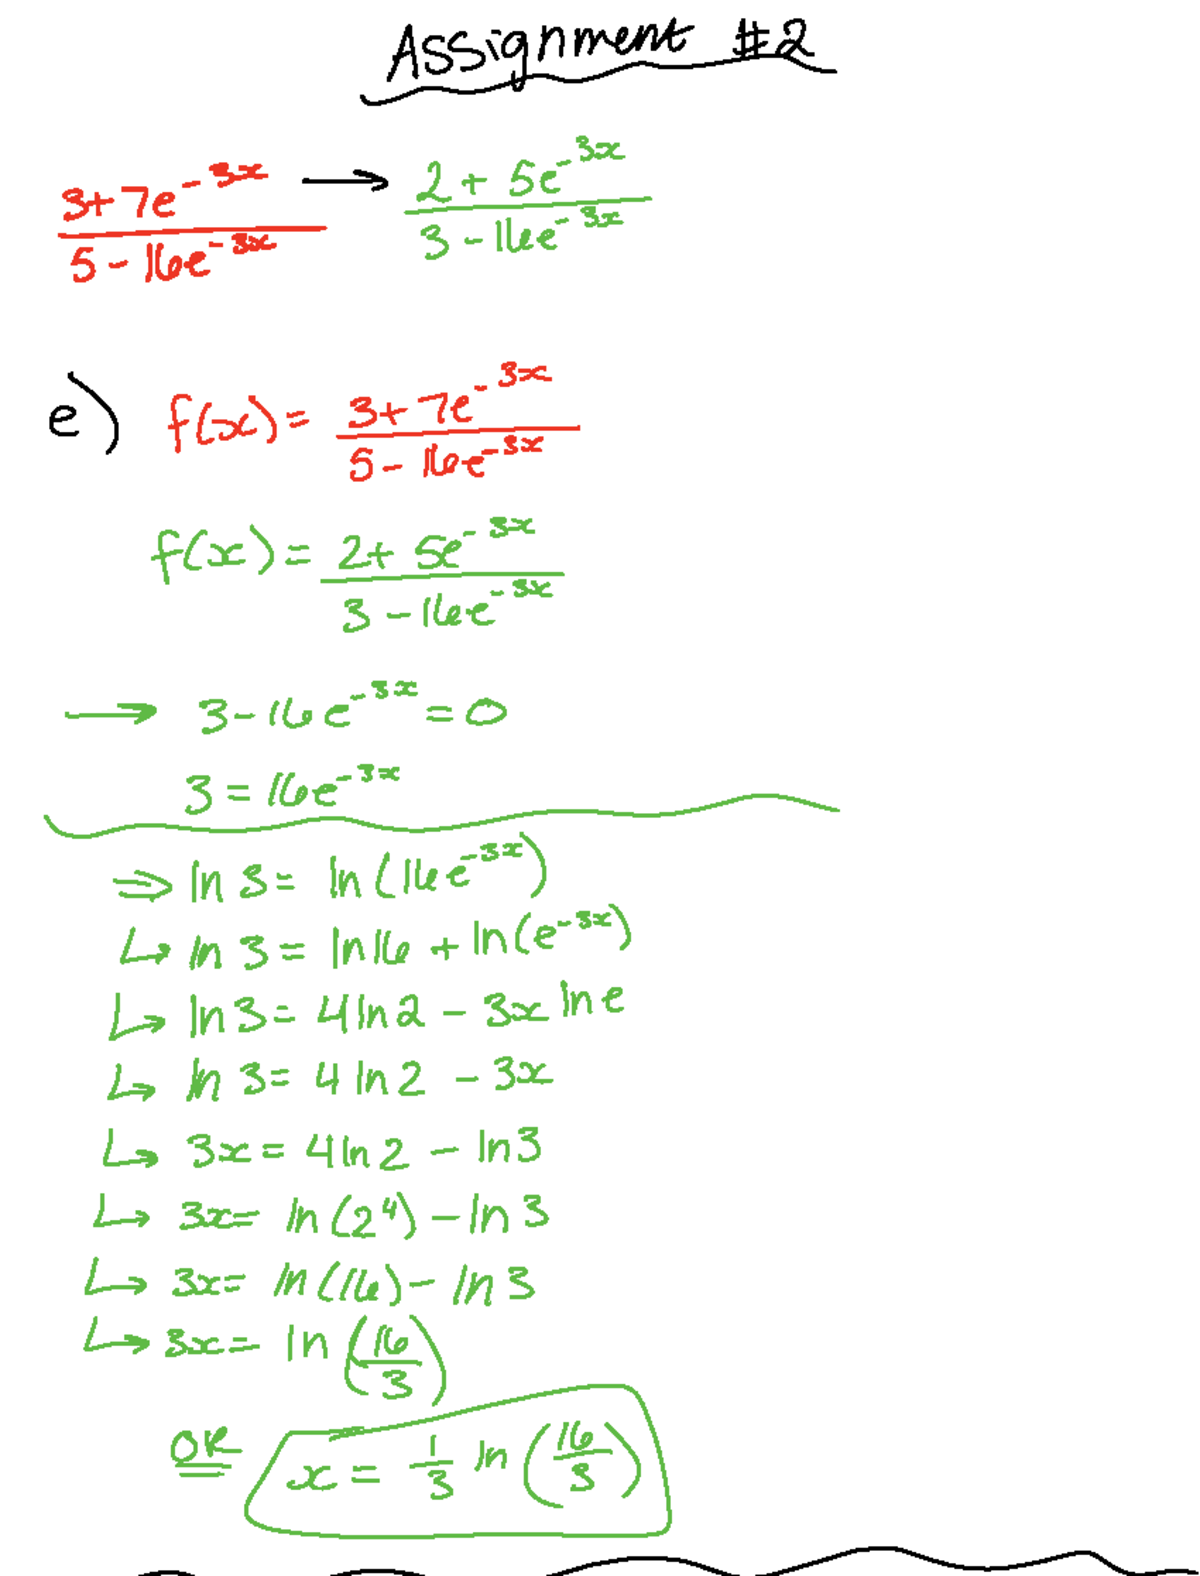 Assignment #2
3+7e^-3x / 5-16e^-3x → 2+5e^-3x / 3-16e^-3x
e) f(x) = 3+7e^-3x / 5-16e^-3x
f(x) = 2+5e^-3x / 3-16e^-3x
→ 3-16e^-3x = 0
3 = 16e^-3x
⇒ ln 3 = ln(16e^-3x)
↳ ln 3 = ln16 + ln(e^-3x)
↳ ln3 = 4ln2 - 3x ln e
↳ ln 3 = 4 ln 2 - 3x
↳ 3x = 4ln2 - ln3
↳ 3x = ln(2^4) - ln 3
↳ 3x = ln(16) - ln 3
↳ 3x = ln(16/3)
OR x = 1/3 ln(16/3)